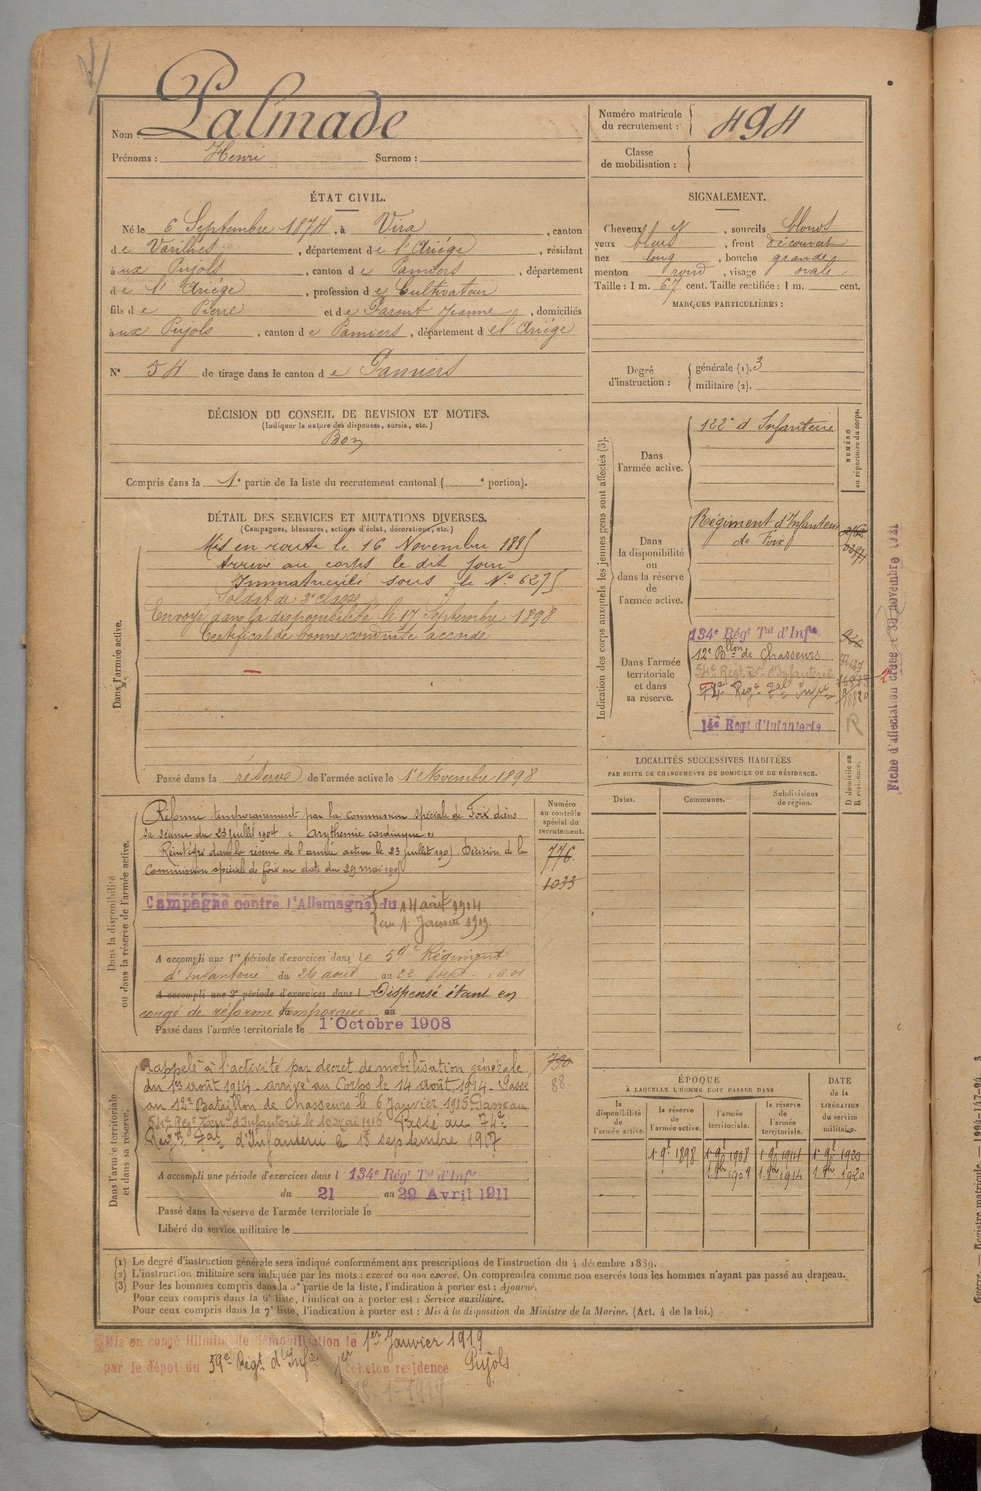 Nom : Palmade
Prénoms : Henri Surnom :
Numéro matricule du recrutement : 494
Classe de mobilisation :
ÉTAT CIVIL.
Né le 6 Septembre 1874, à Vira, canton
de Varilhes, département de l'Ariège, résidant
à ux Pujols, canton de Pamiers, département
de l'Ariège, profession de Cultivateur
fils de Pierre et de Jeanne, domiciliés
à ux Pujols, canton de Pamiers, département de l'Ariège
N° 54 de tirage dans le canton de Pamiers
SIGNALEMENT.
Cheveux et, sourcils blonds
yeux bleus, front découvert
nez long, bouche grande
menton rond, visage ovale
Taille : 1 m. 67 cent. Taille rectifiée : 1 m. cent.
MARQUES PARTICULIÈRES :
Degré d'instruction : générale (1). 3
militaire (2).
DÉCISION DU CONSEIL DE REVISION ET MOTIFS.
(Indiquer la nature des dispenses, sursis, etc.)
Bon
Compris dans la 1e partie de la liste du recrutement cantonal ( e portion).
DÉTAIL DES SERVICES ET MUTATIONS DIVERSES.
(Campagnes, blessures, actions d'éclat, décorations, etc.)
Dans l'armée active.
Mis en route le 16 Novembre 1895
Arrivé au corps le dit jour
Immatriculé sous le N° 6275
Soldat de 2e classe
Envoyé dans la disponibilité le 17 Septembre 1898
Certificat de bonne conduite accordé
Passé dans la réserve de l'armée active le 1er Novembre 1898
Indication des corps auxquels les jeunes gens sont affectés (3).
NUMÉRO au répertoire du corps.
Dans l'armée active.
122e d'Infanterie
Dans la disponibilité ou dans la réserve de l'armée active.
Régiment d'Infanterie
de Foix
Dans l'armée territoriale et dans sa réserve.
134e Régt Tal d'Infie
12e Bllon de Chasseurs
54e Régt Tal d'Infanterie
74e Régt Tal Infie
14e Régt d'Infanterie
R
Fiche d'affectation
LOCALITÉS SUCCESSIVES HABITÉES
PAR SUITE DE CHANGEMENTS DE DOMICILE OU DE RÉSIDENCE.
Dates. Communes. Subdivisions de région.
D domicile ou R résidence.
Dans la disponibilité ou dans la réserve de l'armée active.
Numéro au contrôle spécial du recrutement.
776
1033
Réformé temporairement par la commission spéciale de Foix dans
sa séance du 23 juillet 1904 "Arythmie cardiaque"
Réintégré dans la réserve de l'armée active le 23 juillet 1905. Décision de la
Commission spéciale de Foix en date du 29 mai 1905
Campagne contre l'Allemagne du 14 août 1914
au 1 Janvier 1919
A accompli une 1re période d'exercices dans le 59e Régiment
d'Infanterie du 26 août au 22 Sept. 1901
A accompli une 2e période d'exercices dans l Dispensé étant en
congé de réforme temporaire au
Passé dans l'armée territoriale le 1 Octobre 1908
Dans l'armée territoriale et dans sa réserve.
790
88
Rappelé à l'activité par décret de mobilisation générale,
du 1er août 1914. arrivé au Corps le 14 août 1914. Passé
au 12e Bataillon de Chasseurs le 6 Janvier 1915 Passé au
54e Régt Terr d'Infanterie le 10 mai 1916 Passé au 74e
Régt Tal d'Infanterie le 15 septembre 1917
A accompli une période d'exercices dans l 134e Régt Tal d'Infie
du 21 au 29 Avril 1911
Passé dans la réserve de l'armée territoriale le
Libéré du service militaire le
ÉPOQUE
À LAQUELLE L'HOMME DOIT PASSER DANS
la disponibilité de l'armée active. la réserve de l'armée active. l'armée territoriale. la réserve de l'armée territoriale.
DATE de la LIBÉRATION du service militaire.
1 9bre 1898 1 9bre 1908 1 9bre 1914 1 9bre 1920
1 8bre 1908 1 8bre 1914 1 8bre 1920
(1) Le degré d'instruction générale sera indiqué conformément aux prescriptions de l'instruction du 4 décembre 1889.
(2) L'instruction militaire sera indiquée par les mots : exercé ou non exercé. On comprendra comme non exercés tous les hommes n'ayant pas passé au drapeau.
(3) Pour les hommes compris dans la 5e partie de la liste, l'indication à porter est : Ajourné.
Pour ceux compris dans la 6e liste, l'indication à porter est : Service auxiliaire.
Pour ceux compris dans la 7e liste, l'indication à porter est : Mis à la disposition du Ministre de la Marine. (Art. 4 de la loi.)
Mis en congé illimité de démobilisation le 1er Janvier 1919
par le dépôt du 59e Régt d'Infie 1er échelon residence Pujols